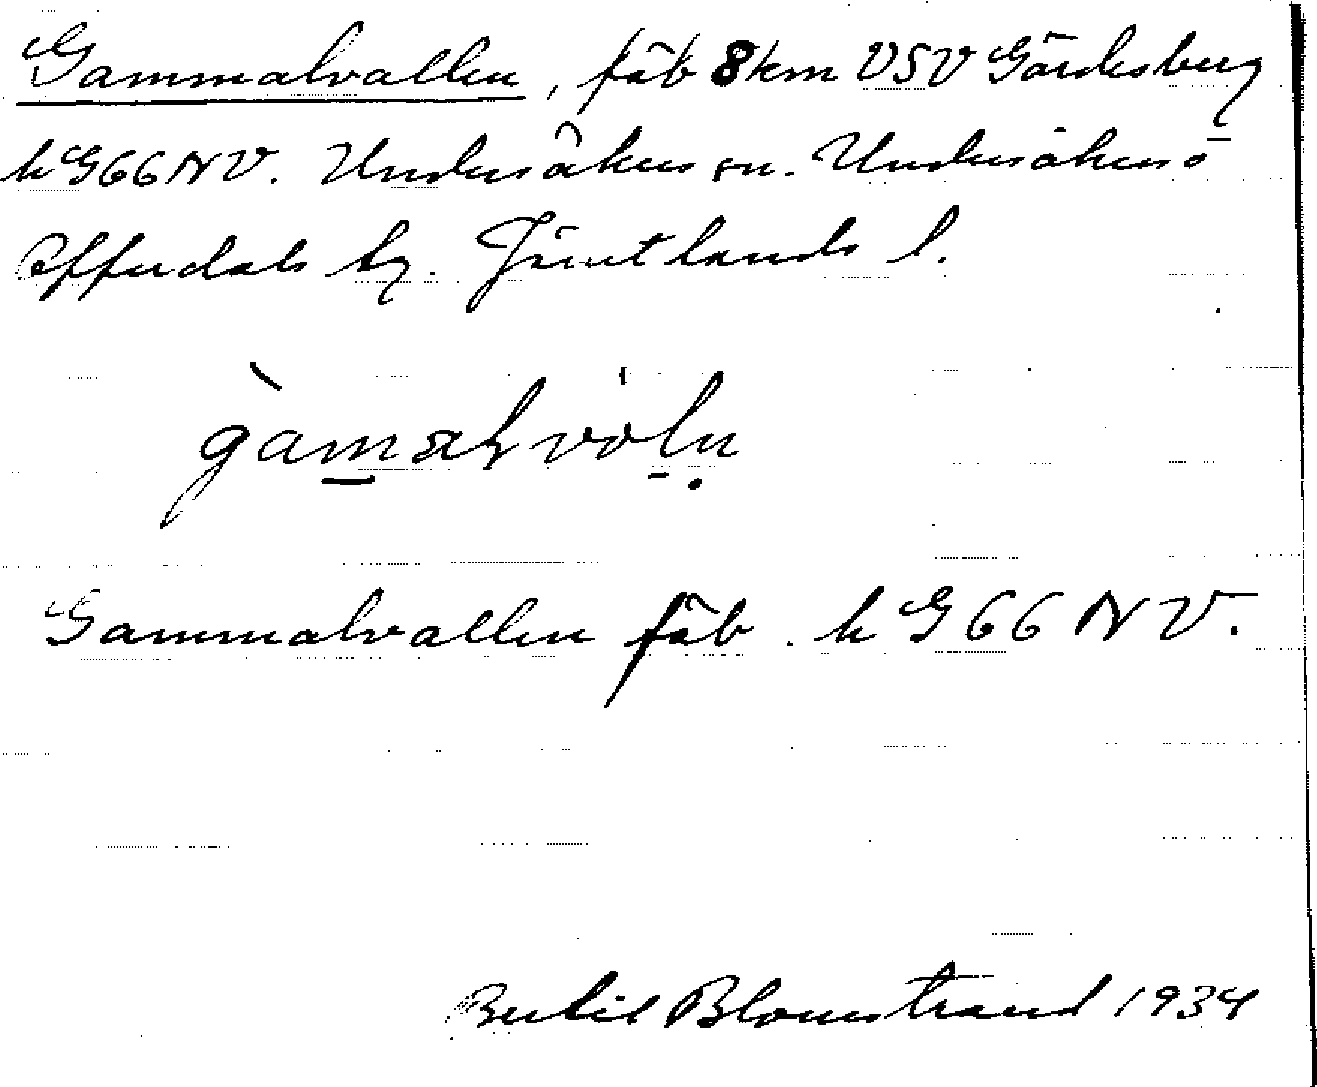 Gammalvallen, fäb 8 km VSV Gärdesberg
k G66NV. Undersåkers sn. Undersåkers o
Offerdals tg. Jämtlands l.
Gammalvallen fäb. k G66NV.
Bertil Blomstrand 1934